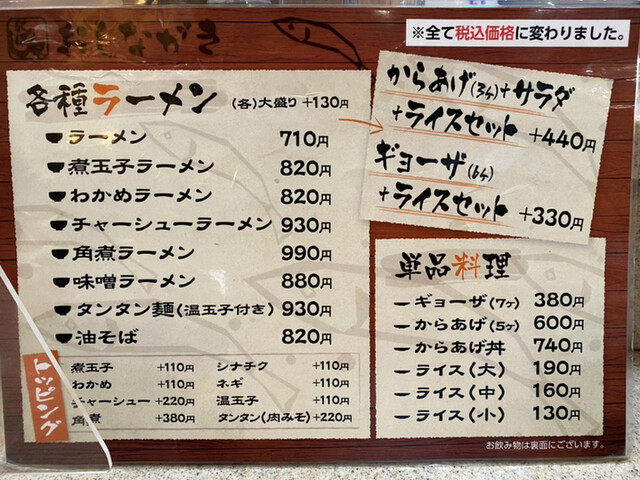 おしながき
※全て税込価格に変わりました。
各種ラーメン (各)大盛り+130円
ラーメン 710円
煮玉子ラーメン 820円
わかめラーメン 820円
チャーシューラーメン 930円
角煮ラーメン 990円
味噌ラーメン 880円
タンタン麺(温玉子付き) 930円
油そば 820円
トッピング
煮玉子 +110円 シナチク +110円
わかめ +110円 ネギ +110円
チャーシュー +220円 温玉子 +110円
角煮 +380円 タンタン(肉みそ) +220円
からあげ(3ケ)+サラダ
+ライスセット +440円
ギョーザ(6ケ)
+ライスセット +330円
単品料理
ギョーザ(7ケ) 380円
からあげ(5ケ) 600円
からあげ丼 740円
ライス(大) 190円
ライス(中) 160円
ライス(小) 130円
お飲み物は裏面にございます。